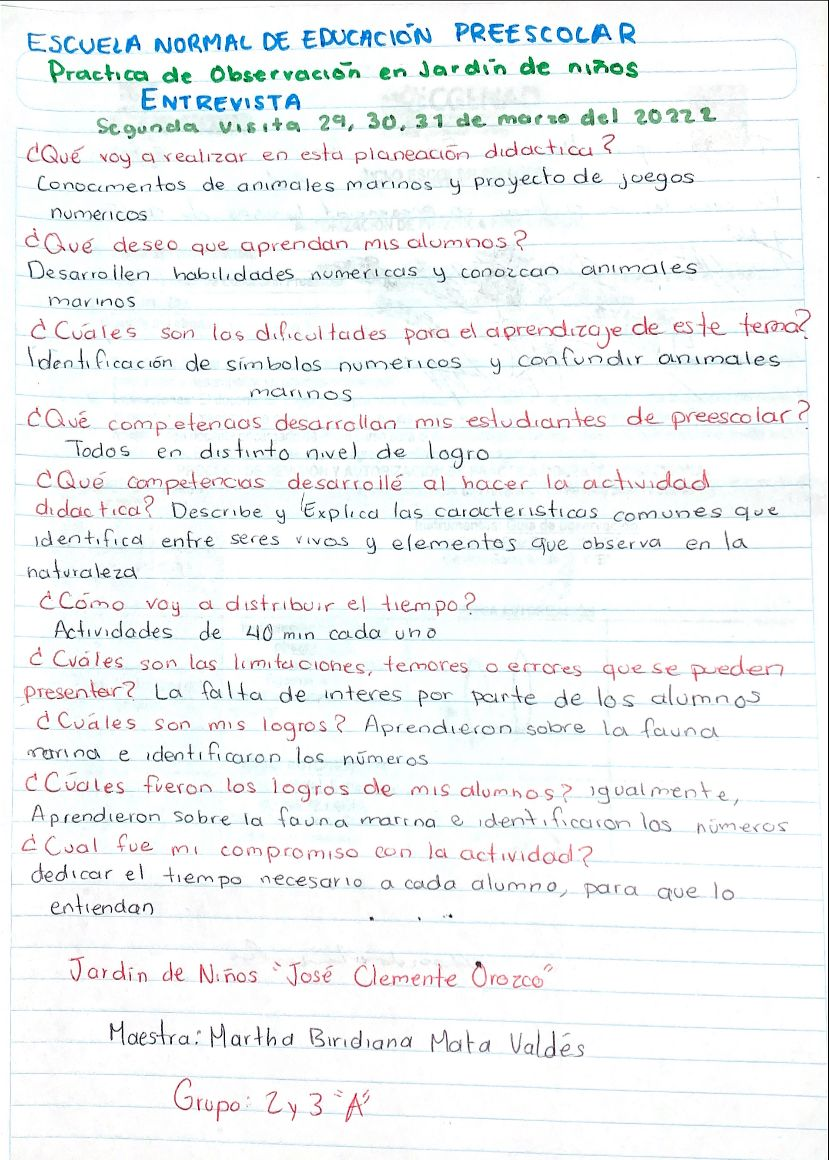 ESCUELA NORMAL DE EDUCACIÓN PREESCOLAR
Practica de Observación en Jardín de niños
ENTREVISTA
Segunda visita 29, 30, 31 de marzo del 20222
¿Qué voy a realizar en esta planeación didactica?
Conocimentos de animales marinos y proyecto de juegos
numericos
¿Qué deseo que aprendan mis alumnos?
Desarrollen habilidades numericas y conozcan animales
marinos
¿Cuáles son las dificultades para el aprendizaje de este tema?
Identificación de símbolos numericos y confundir animales
marinos
¿Qué competencias desarrollan mis estudiantes de preescolar?
Todos en distinto nivel de logro
¿Qué competencias desarrollé al hacer la actividad
didactica? Describe y Explica las caracteristicas comunes que
identifica entre seres vivos y elementos que observa en la
naturaleza
¿Cómo voy a distribuir el tiempo?
Actividades de 40 min cada uno
¿Cuáles son las limitaciones, temores o errores que se pueden
presentar? La falta de interes por parte de los alumnos
¿Cuáles son mis logros? Aprendieron sobre la fauna
marina e identificaron los números
¿Cúales fueron los logros de mis alumnos? igualmente,
Aprendieron sobre la fauna marina e identificaron los números
¿Cual fue mi compromiso con la actividad?
dedicar el tiempo necesario a cada alumno, para que lo
entiendan
Jardín de Niños "José Clemente Orozco"
Maestra: Martha Biridiana Mata Valdés
Grupo: 2 y 3 "A"